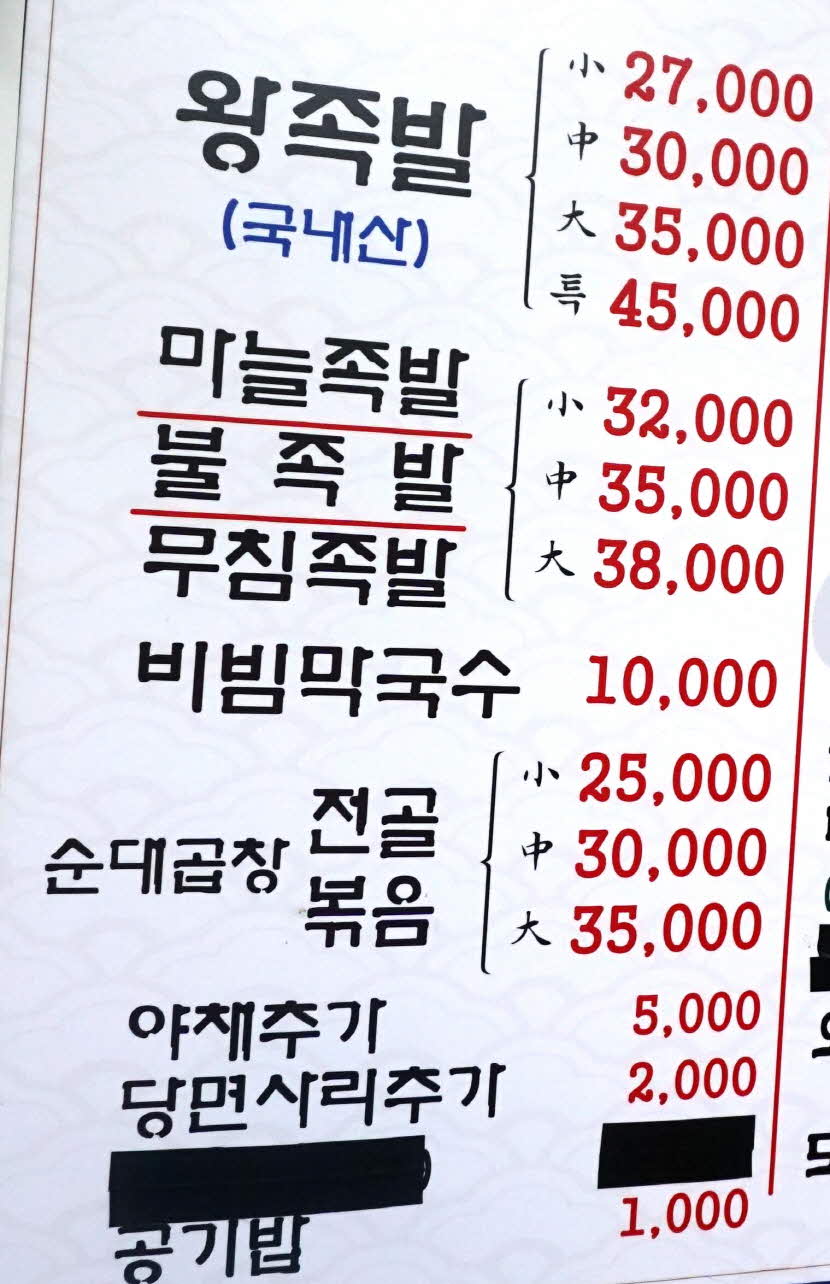 왕족발 小 27,000
中 30,000
(국내산) 大 35,000
특 45,000
마늘족발 小 32,000
불 족 발 中 35,000
무침족발 大 38,000
비빔막국수 10,000
순대곱창 전골 小 25,000
中 30,000
볶음 大 35,000
야채추가 5,000
당면사리추가 2,000
공기밥 1,000